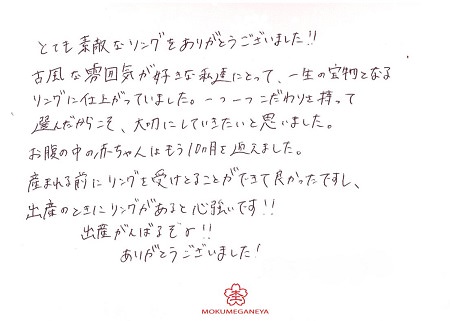 とても素敵なリングをありがとうございました!!
古風な雰囲気が好きな私達にとって、一生の宝物となる
リングに仕上がっていました。一つ一つこだわりを持って
選んだからこそ、大切にしていきたいと思いました。
お腹の中の赤ちゃんはもう10ヶ月を迎えました。
産まれる前にリングを受けとることができて良かったですし、
出産のときにリングがあると心強いです!!
出産がんばるぞ!!
ありがとうございました!
MOKUMEGANEYA